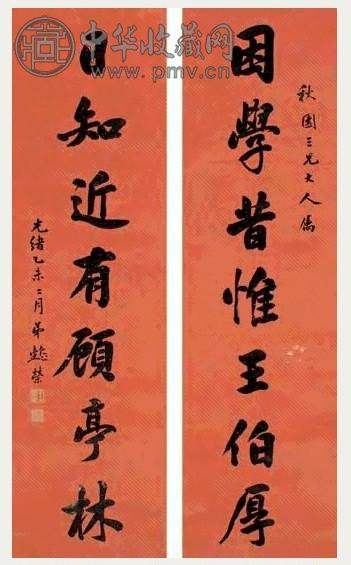 中华收藏网
www.pmv.cn
秋圃三兄大人屬
困學昔惟王伯厚
日知近有顧亭林
光緒乙未二月弟懿榮